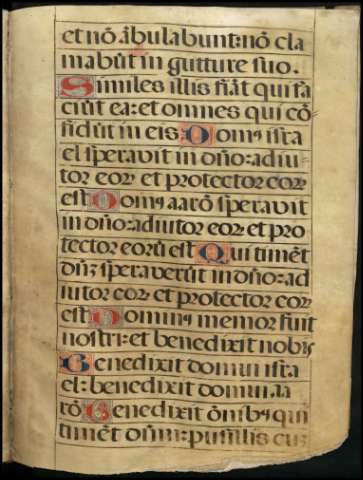 et nō ābulabunt: nō cla
mabūt in gutture suo.
Similes illis fiāt qui fa
ciūt ea: et omnes qui cō
fidūt in eis. Domꝰ isra
el speravit in dn̄o: adiu
tor eoꝝ et protector eoꝝ
est Domꝰ aarō speravit
in dn̄o: adiutor eoꝝ et pro
tector eorū est Qui timēt
dn̄ꝫ speraverūt in dn̄o: ad
iutor eoꝝ et protector eoꝝ
est Dominꝰ memor fuit
nostri: et benedixit nobis
Benedixit domui isra
el: benedixit domui aa
rō Benedixit om̄ibꝰ qui
timēt dn̄m: pusillis cuꝫ